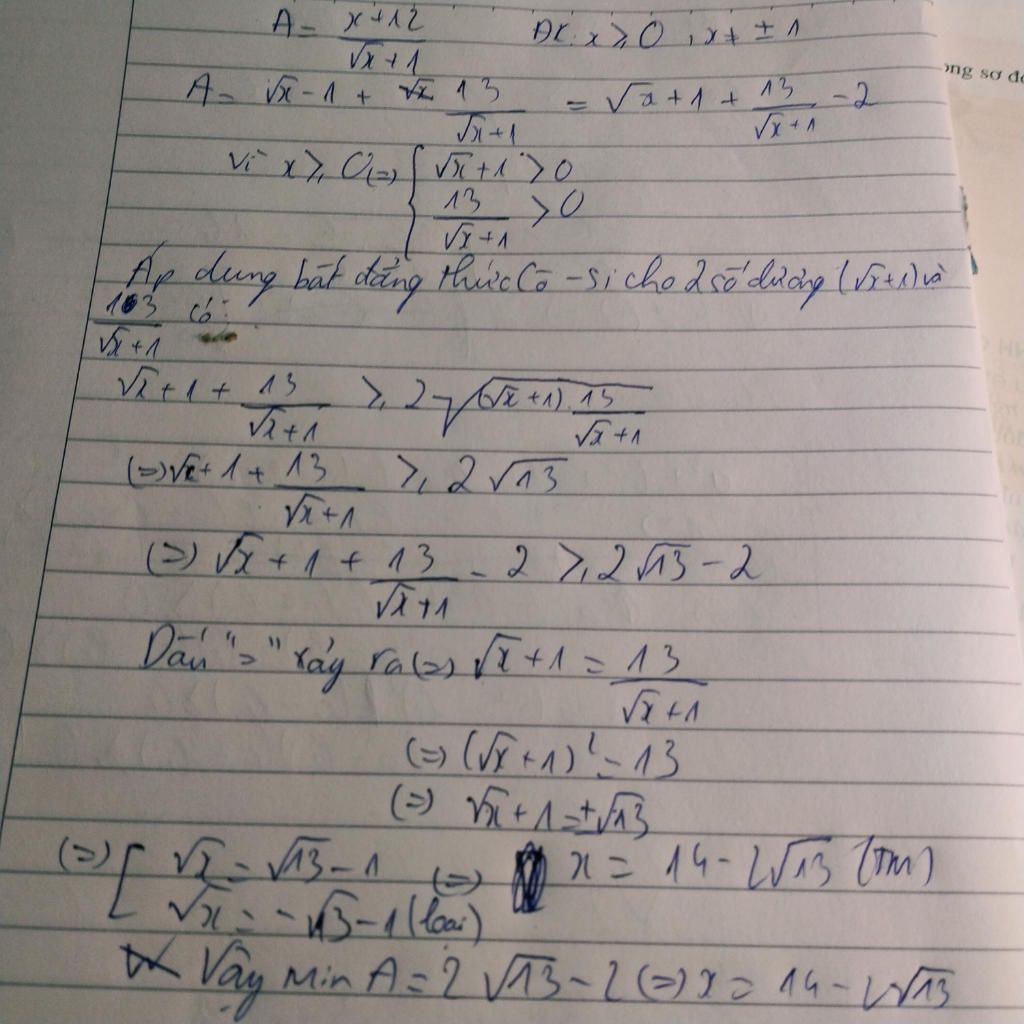 A = \frac{x+12}{\sqrt{x}+1} ĐK: x ⩾ 0, x ≠ ± 1
A = \sqrt{x} - 1 + \frac{13}{\sqrt{x}+1} = \sqrt{x} + 1 + \frac{13}{\sqrt{x}+1} - 2
Vì x ⩾ 0 (=) { \sqrt{x} + 1 > 0
\frac{13}{\sqrt{x}+1} > 0
Áp dung bất đẳng thức Cô - Si cho 2 số dương (\sqrt{x}+1) và
\frac{13}{\sqrt{x}+1} có:
\sqrt{x} + 1 + \frac{13}{\sqrt{x}+1} ⩾ 2\sqrt{(\sqrt{x}+1).\frac{13}{\sqrt{x}+1}}
(=) \sqrt{x} + 1 + \frac{13}{\sqrt{x}+1} ⩾ 2\sqrt{13}
(=) \sqrt{x} + 1 + \frac{13}{\sqrt{x}+1} - 2 ⩾ 2\sqrt{13} - 2
Dấu "=" xảy ra (=) \sqrt{x} + 1 = \frac{13}{\sqrt{x}+1}
(=) (\sqrt{x} + 1)² = 13
(=) \sqrt{x} + 1 = ±\sqrt{13}
(=) [ \sqrt{x} = \sqrt{13} - 1 (=) x = 14 - 2\sqrt{13} (TM)
\sqrt{x} = -\sqrt{13} - 1 (loại)
Vậy Min A = 2\sqrt{13} - 2 (=) x = 14 - 2\sqrt{13}